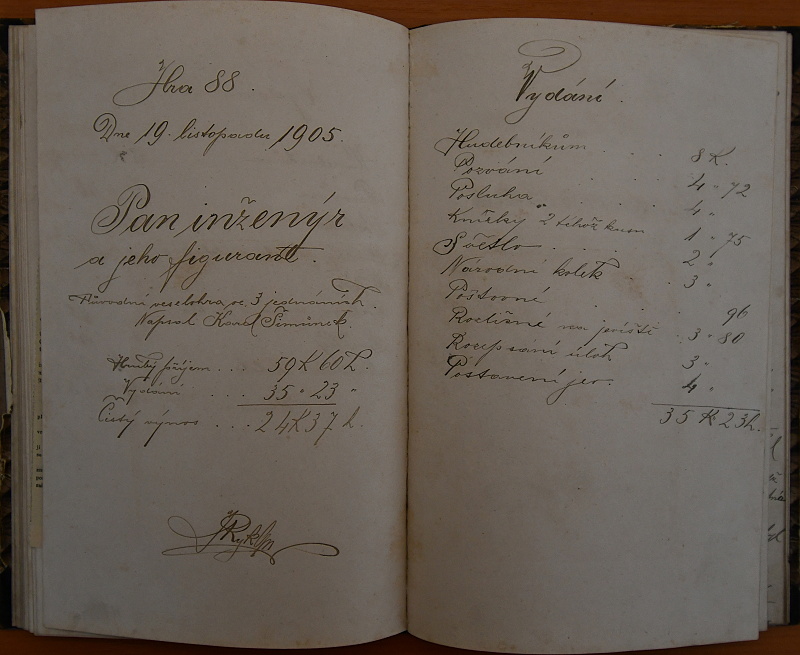 Hra 88.
Dne 19. listopadu 1905.
Pan inženýr
a jeho figurant.
Původní veselohra ve 3 jednáních.
Napsal Karel Šimůnek.
Hrubý příjem . . . 59 K 60 h.
Vydání . . . . 35 " 23 "
Čistý výnos . . . 24 K 37 h.
Vydání.
Hudebníkům . . . 8 K.
Pozvání . . . 4 " 72
Posluha . . . 4 "
Knížky 2 téhož kusu 1 " 75
Světlo . . . 2 "
Národní kolek . . 3 "
Poštovné . . . 96
Roztižné na jeviště . 3 " 80
Rozepsání úloh 3 "
Postavení jev. . . 4 "
35 K 23 h.